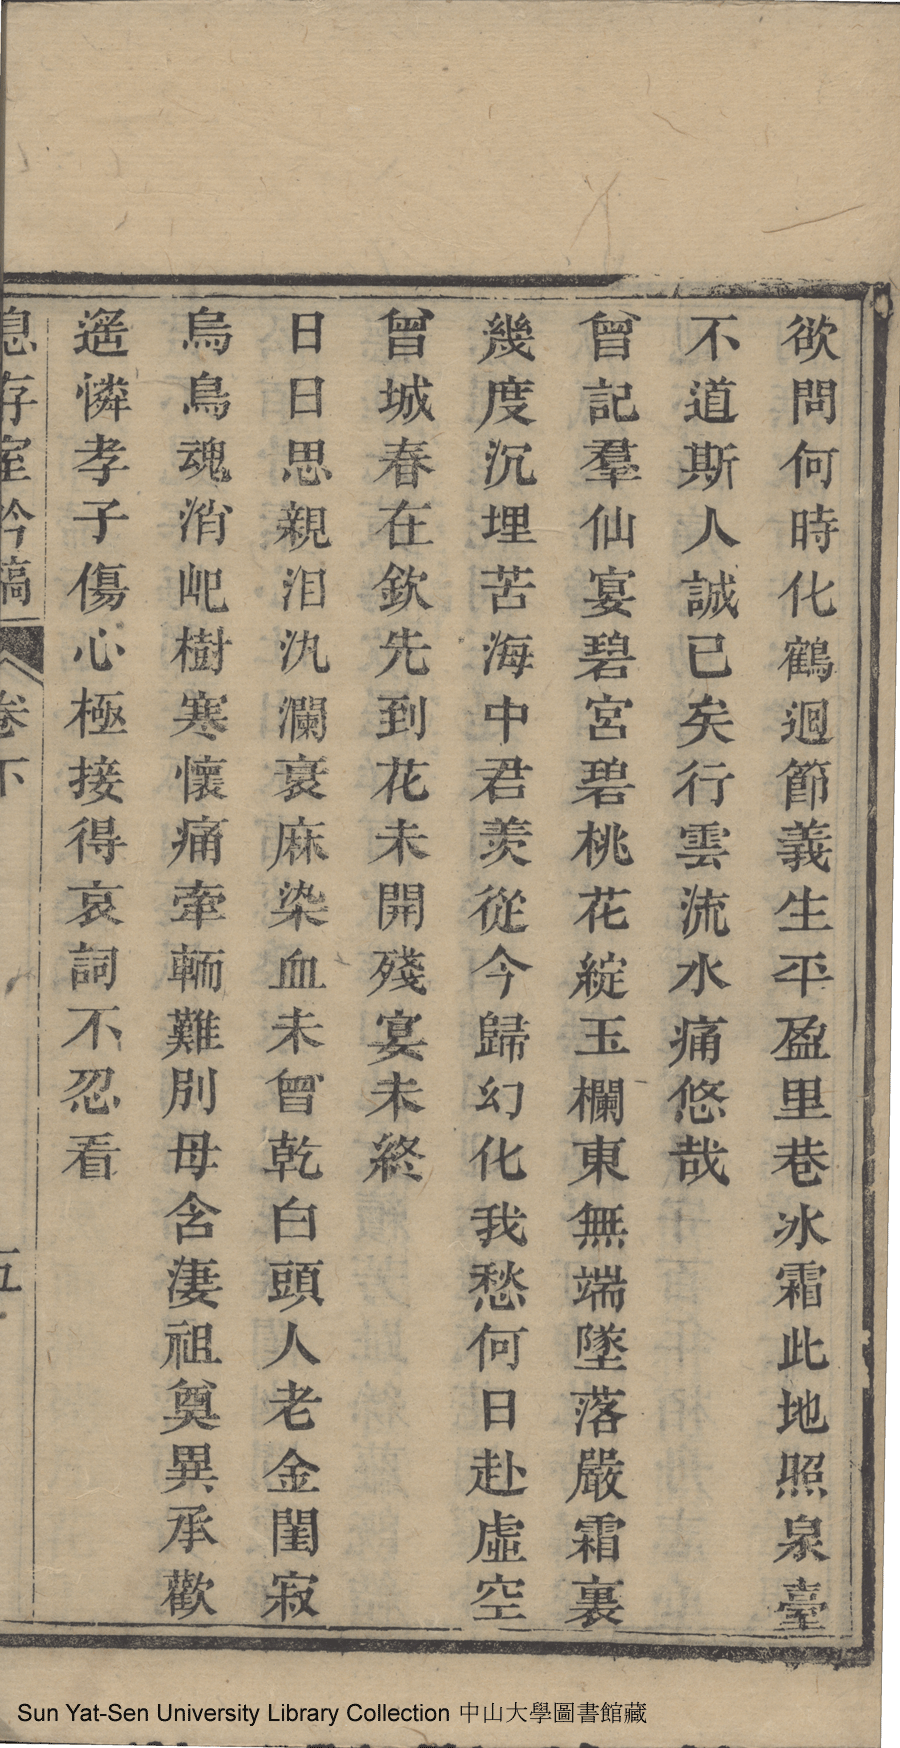 欲問何時化鶴迴節義生平盈里巷冰霜此地照泉臺
不道斯人誠已矣行雲流水痛悠哉
曾記羣仙宴碧宮碧桃花綻玉欄東無端墜落嚴霜裏
幾度沉埋苦海中君羡從今歸幻化我愁何日赴虛空
曾城春在欽先到花未開殘宴未終
日日思親泪汍瀾衰麻染血未曾乾白頭人老金閨寂
烏鳥魂消屺樹寒懷痛牽輀難別母含淒祖奠異承歡
遙憐孝子傷心極接得哀詞不忍看
息存室吟稿 卷下 五
Sun Yat-Sen University Library Collection 中山大學圖書館藏